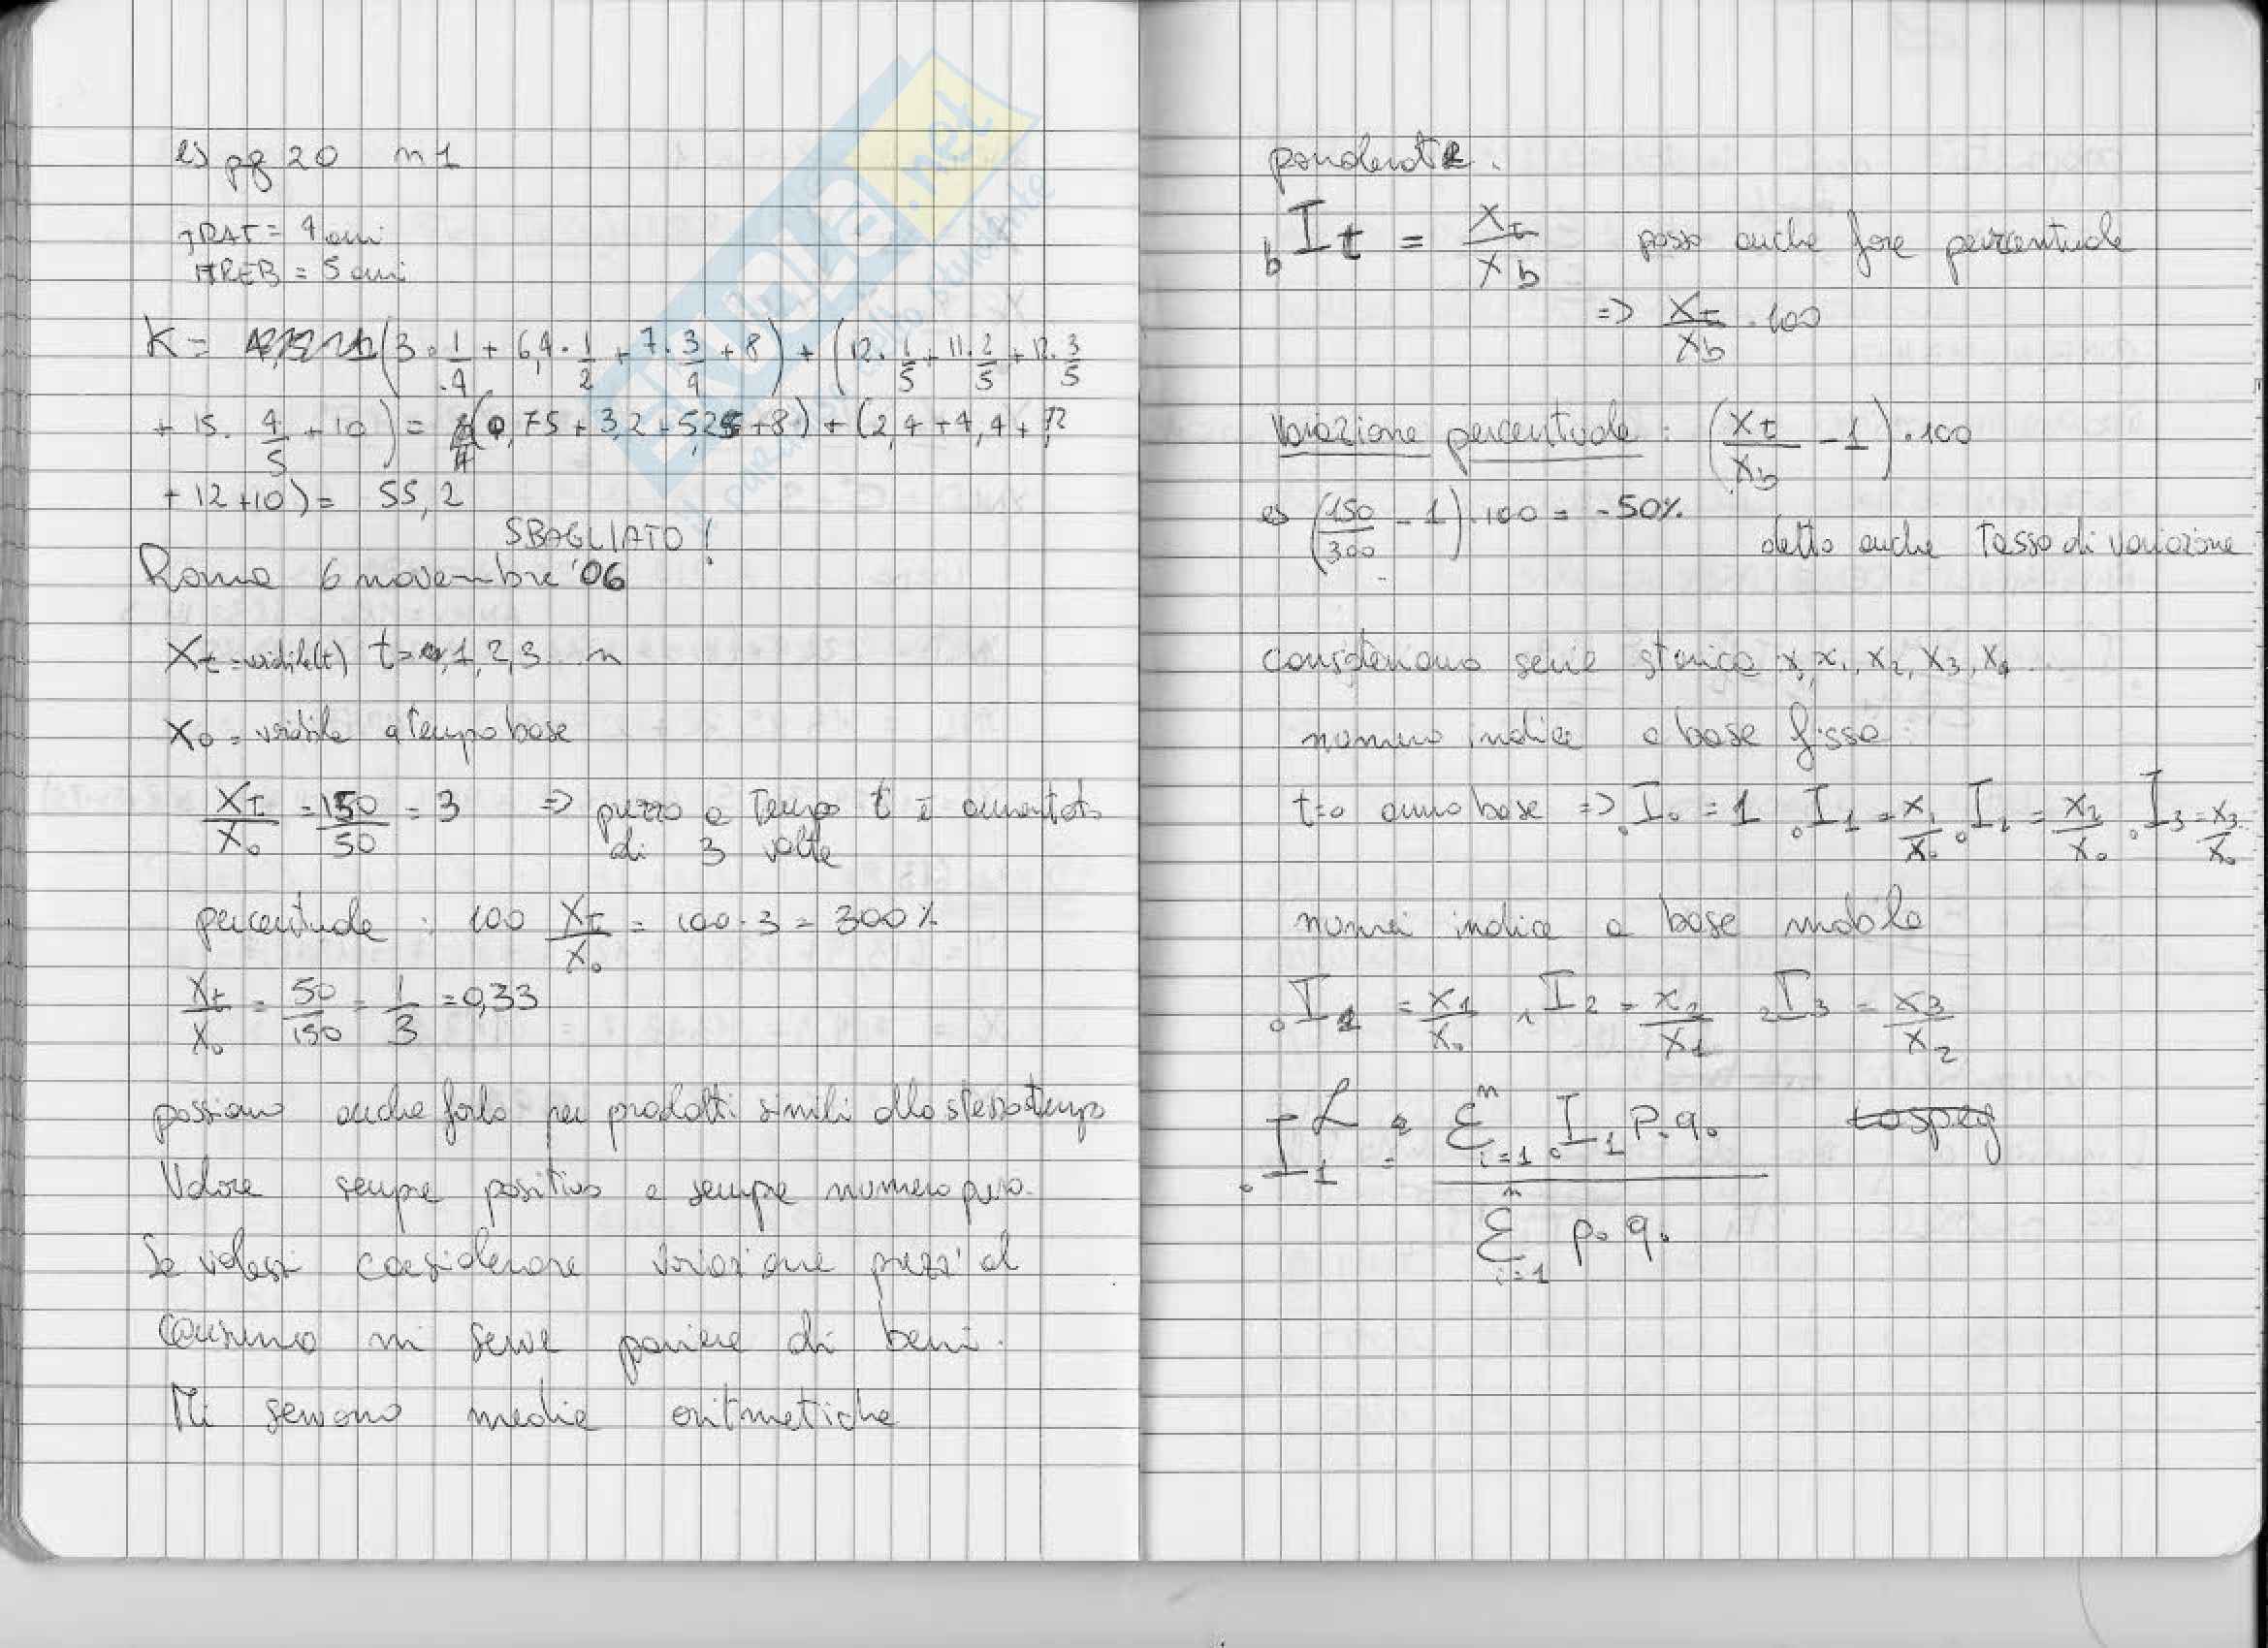 es pg 20 n 1
IRAT = 4 anni
HREB = 5 anni
K = (3 · 1/4 + 6,4 · 1/2 + 7 · 3/4 + 8) + (12 · 1/5 + 11 · 2/5 + 12 · 3/5
+ 15 · 4/5 + 10) = (0,75 + 3,2 + 5,25 + 8) + (2,4 + 4,4 + 7,2
+ 12 + 10) = 55,2
SBAGLIATO!
Roma 6 novembre '06
Xt = variabile(t) t = 0, 1, 2, 3 ... n
X0 = variabile a tempo base
Xt/X0 = 150/50 = 3 => prezzo a tempo t è aumentato
di 3 volte
percentuale : 100 Xt/X0 = 100 · 3 = 300%
Xt/X0 = 50/150 = 1/3 = 0,33
possiamo anche farlo per prodotti simili allo stesso tempo
Valore sempre positivo e sempre numero puro.
Se volessi considerare variazione prezzi al
consumo mi serve paniere di beni.
Mi servono medie aritmetiche
ponderate.
bIt = Xt/Xb posso anche fare percentuale
=> Xt/Xb · 100
Variazione percentuale : (Xt/Xb - 1) · 100
es (150/300 - 1) · 100 = -50%
detto anche Tasso di variazione
consideriamo serie storica x0, x1, x2, x3, x4 ...
numero indice a base fissa:
t=0 anno base => 0I0 = 1 0I1 = x1/x0 0I2 = x2/x0 0I3 = x3/x0
numeri indice a base mobile
0I1 = x1/x0 1I2 = x2/x1 2I3 = x3/x2
0I1^L = Σ(i=1, n) 0I1 p0 q0 / Σ(i=1, n) p0 q0
SKUOLA.net